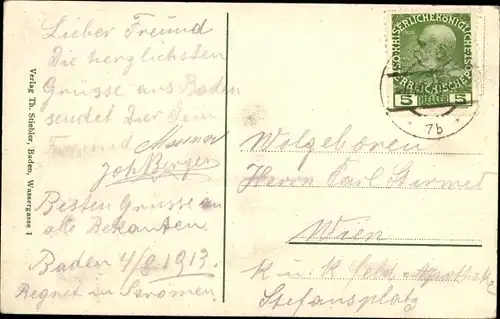 Lieber Freund
Die herzlichsten
Grüsse aus Baden
sendet Dir Dein
Freund
Joh Berger
Besten Grüsse an
alle Bekanten.
Baden 4/8 1913.
Regnet in Strömen
Verlag Th. Stiebler, Baden, Wassergasse 1
KAISERLICHE KÖNIGLICHE ÖSTERREICHISCHE POST
5 HELLER 5
7b
Wolgeboren
Herrn Carl
Wien
K u. K
Stefansplatz